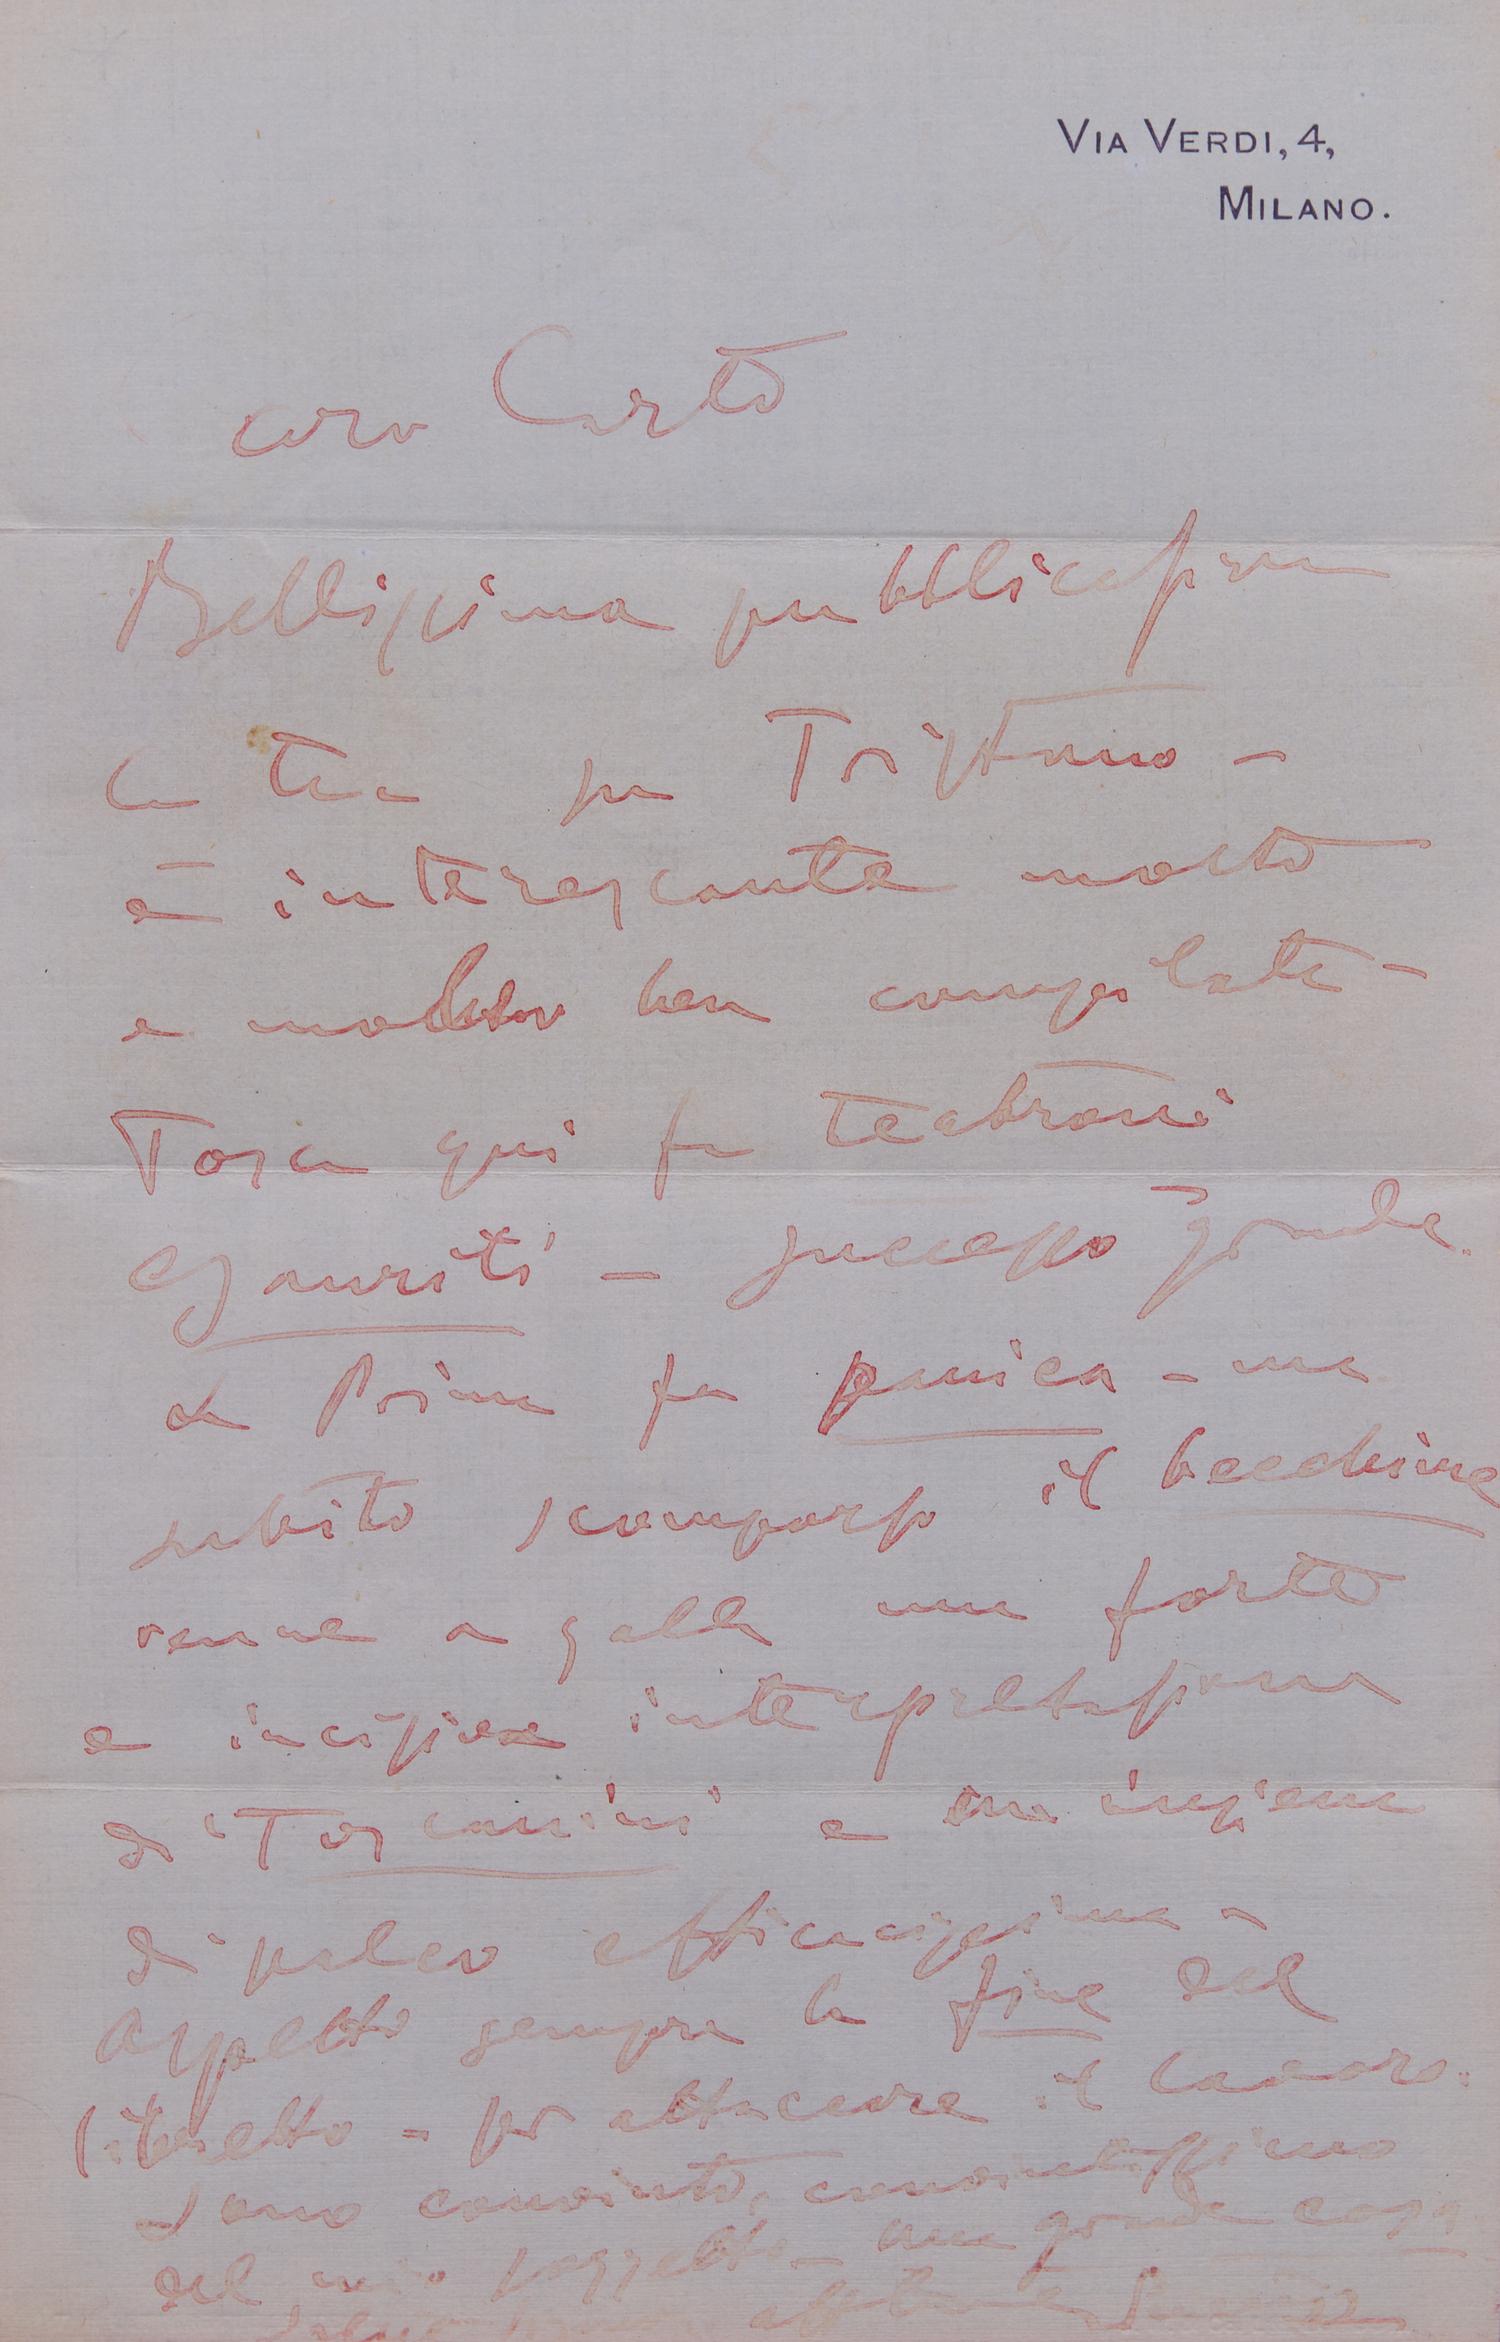 VIA VERDI, 4,
MILANO.
caro Carlo
Bellissima pubblicazione
la tua pu Tristano -
è interessante molto
e molto ben compilata -
Tosca qui fa teatroni
esauriti - successo grande.
La Prima fu panica - ma
subito scomparso il becchime
venne a galla una forte
e incisiva interpretazione
di Toscanini e un insieme
di palco efficacissimo -
Aspetto sempre la fine del
libretto - per attaccare il lavoro.
Sono convinto, convintissimo
del mio soggetto - una grande cosa